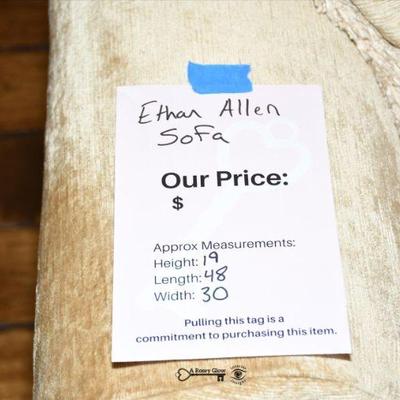 Ethan Allen
Sofa
Our Price:
$
Approx Measurements:
Height: 19
Length: 48
Width: 30
Pulling this tag is a
commitment to purchasing this item.
A Rosey Glow